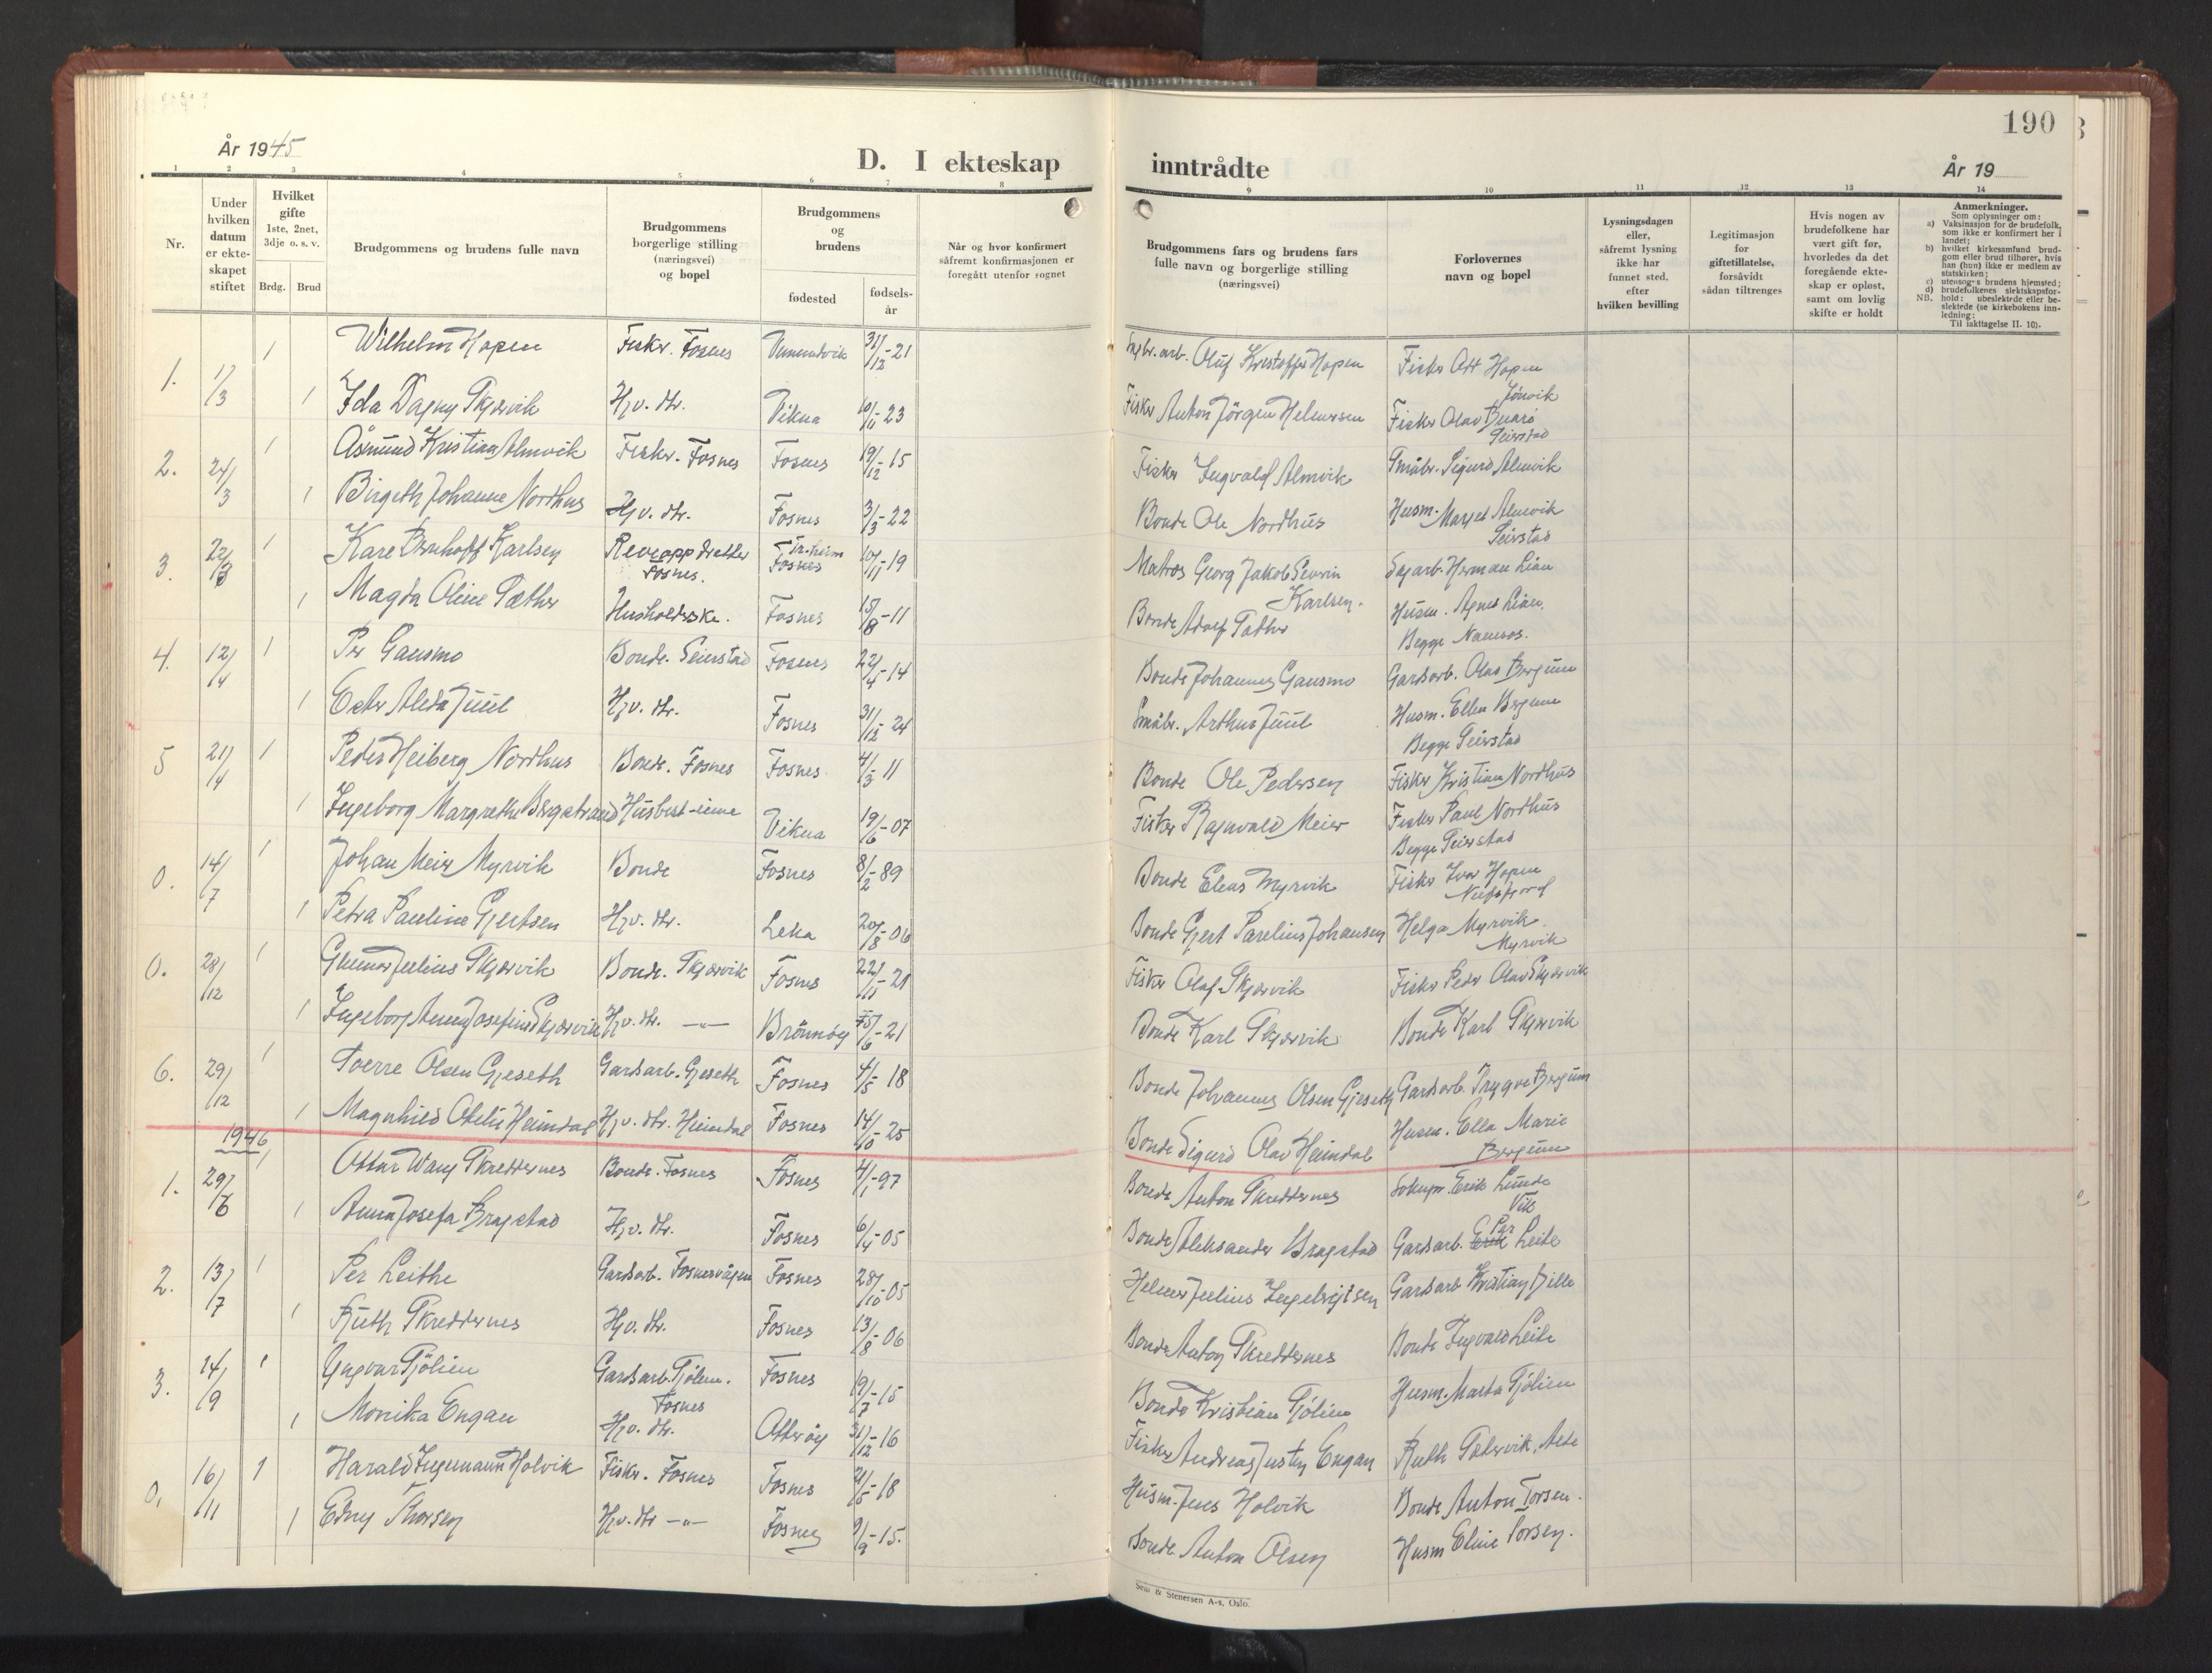 190
År 1945
D. I ekteskap
inntrådte
År 19
1 2 3 4 5 6 7 8 9 10 11 12 13 14
Nr.
Under hvilken datum er ekte-skapet stiftet
Hvilket gifte 1ste, 2net, 3dje o. s. v.
Brdg. Brud
Brudgommens og brudens fulle navn
Brudgommens borgerlige stilling (næringsvei) og bopel
Brudgommens og brudens
fødested
fødsels-år
Når og hvor konfirmert såfremt konfirmasjonen er foregått utenfor sognet
Brudgommens fars og brudens fars fulle navn og borgerlige stilling (næringsvei)
Forlovernes navn og bopel
Lysningsdagen eller, såfremt lysning ikke har funnet sted, efter hvilken bevilling
Legitimasjon for giftetillatelse, forsåvidt sådan tiltrenges
Hvis nogen av brudefolkene har vært gift før, hvorledes da det foregående ekte-skap er opløst, samt om lovlig skifte er holdt
Anmerkninger.
Som oplysninger om:
a) Vaksinasjon for de brudefolk, som ikke er konfirmert her i landet;
b) hvilket kirkesamfund brud-gom eller brud tilhører, hvis han (hun) ikke er medlem av statskirken;
c) utensogns brudens hjemsted;
d) brudefolkenes slektskapsfor-hold: ubeslektede eller be-slektede (se kirkebokens inn-ledning:
NB.
Til iakttagelse II. 10).
1. 1/3 1 Wilhelm Hopen Fisker. Fosnes Vemundvik 31/12-21 Oluf Kristoffer Hopen Fisker Ott Hopen
1 Ida Dagny Skjærvik Hjv. dtr. Vikna 10/11-23 Fisker Anton Jörgen Helmersen Fisker Olav Buarö
Seierstad
2. 24/3 1 Åsmund Kristian Almvik Fisker. Fosnes Fosnes 19/12-15 Fisker Ingvald Almvik Småbr. Sigurd Almvik
1 Birgeth Johanne Nordhus Hjv. dtr. Fosnes 3/3-22 Bonde Ole Nordhus Husm. Almvik
Seierstad
3. 22/3 1 Kare Karlsen Reveoppdretter Fosnes. Tr.heim Fosnes 10/11-19 Matros Georg Jakob Severin Karlsen. Sagarb. Herman Lian
1 Magda Oline Sæther Husholderske. Fosnes 15/8-11 Bonde Adolf Sæther Husm. Agnes Lian.
Begge Namsos.
4. 12/4 1 Per Gansmo Bonde. Seierstad Fosnes 22/4-14 Bonde Johannes Gansmo Gardsarb. Olav Bergum
1 Ester Alida Juul Hjv. dtr. Fosnes 31/12-24 Småbr. Arthur Juul Husm. Ella Bergum
Begge Seierstad
5 21/4 1 Peder Heiberg Nordhus Bonde. Fosnes Fosnes 4/3-11 Bonde Ole Pedersen Fisker Kristian Nordhus
1 Ingeborg Margrethe Bergstrand Husbest-inne Vikna 19/6-07 Fisker Ragnvald Meier Fisker Paul Nordhus
Begge Seierstad
0. 14/7 1 Johan Meier Myrvik Bonde Fosnes 8/2-89 Bonde Elias Myrvik Fisker Ivar Hopen
1 Petra Pauline Gjertsen Hjv. dtr. Leka 20/8-06 Bonde Gjert Parelius Johansen Helga Myrvik.
Myrvik
0. 28/12 1 Gunnar Julius Skjærvik Bonde. Skjærvik Fosnes 22/11-21 Fisker Olaf Skjærvik Fisker Peder Olav Skjærvik
1 Ingeborg Anna Josefine Skjærvik Hjv. dtr. —"— Brönnöy 15/6-21 Bonde Karl Skjærvik Bonde Karl Skjærvik
6. 29/12 1 Toerre Olsen Gjeseth Gardsarb. Gjeseth Fosnes 4/5-18 Bonde Johannes Olsen Gjeseth Gardsarb. Trygve Bergum
1 Magnhild Heimdal Hjv. dtr. Heimdal Fosnes 14/10-25 Bonde Sigurd Olav Heimdal Husm. Ella Marie
Bergum
1946
1. 29/6 1 Ottar Wang Skreddernes Bonde. Fosnes Fosnes 4/1-97 Bonde Anton Skreddernes Soknepr. Erik Lunde
Vik
1 Anna Josefa Bragstad Hjv. dtr. Fosnes 6/4-05 Bonde Aleksander Bragstad Gardsarb. Per Leite
2. 13/7 1 Per Leithe Gardsarb. Fosnesvågen Fosnes 28/10-05 Helmer Julius Ingebrigtsen Gardsarb. Kristian Gille
1 Ruth Skreddernes Hjv. dtr. Fosnes 13/8-06 Bonde Anton Skreddernes Bonde Ingvald Leite
3. 14/9 1 Yngvar Tjölien Gardsarb. Tjölien. Fosnes Fosnes 19/7-15 Bonde Kristian Tjölien Husm. Marta Tjölien
1 Monika Engan Hjv. dtr. Otteröy 31/12-16 Fisker Andreas Justen Engan Ruth Sætervik,
0. 16/11 1 Harald Ingemann Holvik Fisker. Fosnes Fosnes 21/5-18 Husm. Jens Holvik Bonde Anton Torsen.
1 Edny Thorsen Hjv. dtr —"— Fosnes 9/9-15. Bonde Anton Olsen Husm Eline Torsen.
Sem & Stenersen A-s, Oslo.